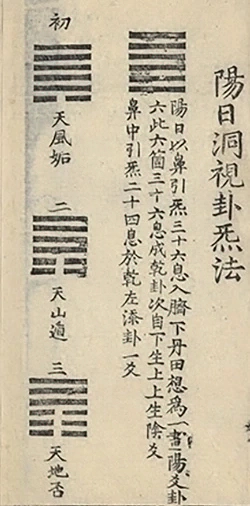 陽日洞視卦炁法
陽日以鼻引炁三十六息入臍下丹田想為一畫陽爻卦
六此六箇三十六息成乾卦次自下生上上生陰爻
鼻中引炁二十四息於乾左添卦一爻
初
天風姤
二
天山遁
三
天地否